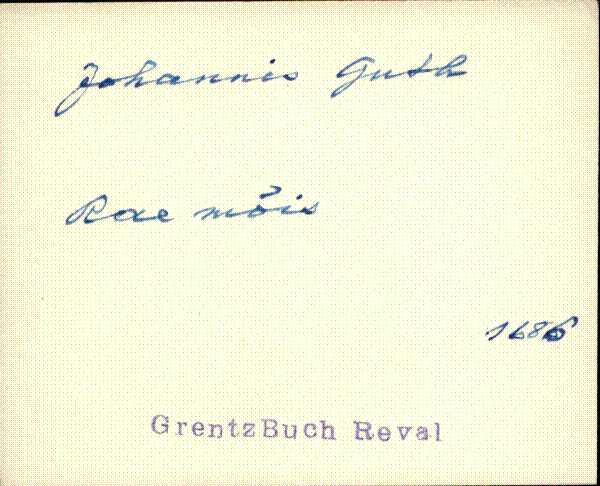 Johannis Guth
Rae mõis
1686
GrentzBuch Reval